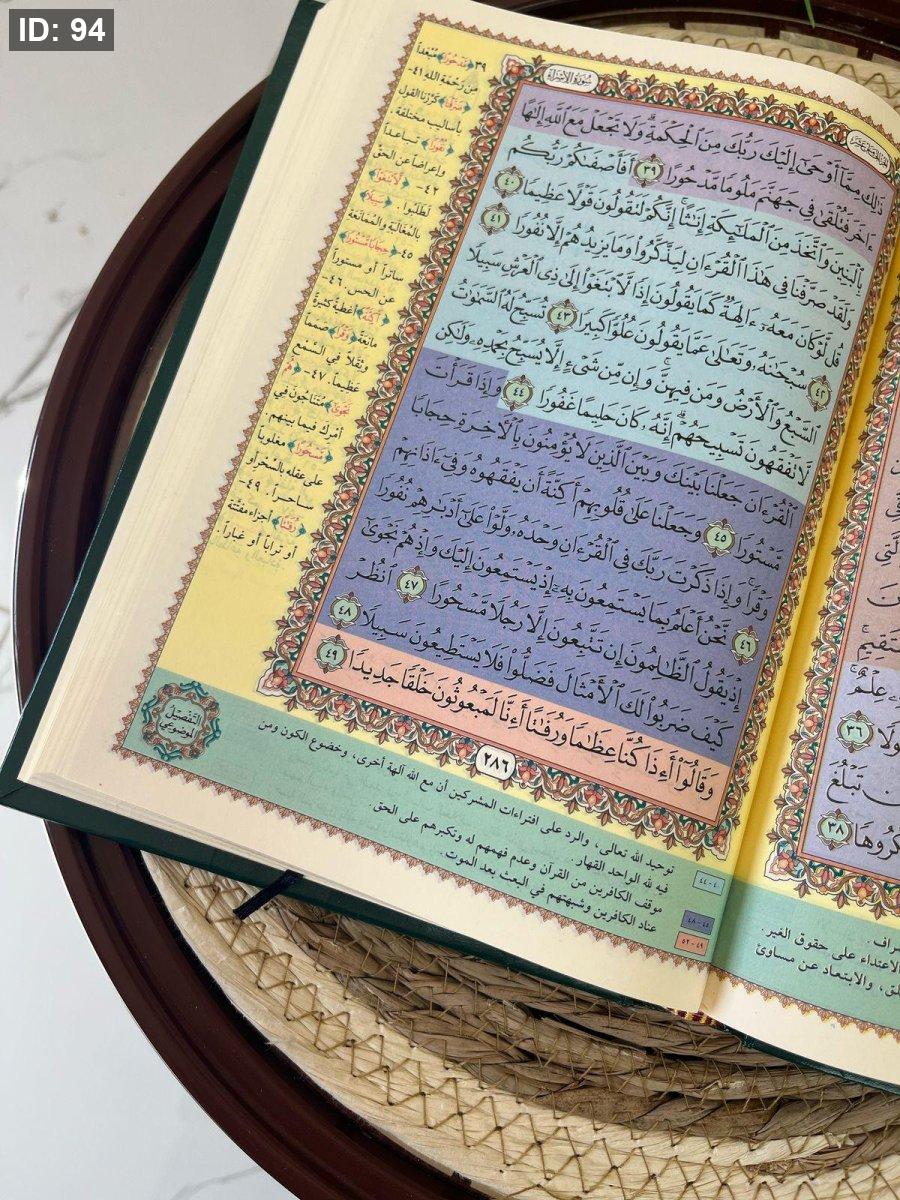 ID: 94
سُورَةُ الإِسْرَاءِ
ذَٰلِكَ مِمَّآ أَوْحَىٰٓ إِلَيْكَ رَبُّكَ مِنَ ٱلْحِكْمَةِ ۗ وَلَا تَجْعَلْ مَعَ ٱللَّهِ إِلَٰهًا
ءَاخَرَ فَتُلْقَىٰ فِى جَهَنَّمَ مَلُومًا مَّدْحُورًا ٣٩ أَفَأَصْفَىٰكُمْ رَبُّكُم
بِٱلْبَنِينَ وَٱتَّخَذَ مِنَ ٱلْمَلَٰٓئِكَةِ إِنَٰثًا ۚ إِنَّكُمْ لَتَقُولُونَ قَوْلًا عَظِيمًا ٤٠
وَلَقَدْ صَرَّفْنَا فِى هَٰذَا ٱلْقُرْءَانِ لِيَذَّكَّرُوا۟ وَمَا يَزِيدُهُمْ إِلَّا نُفُورًا ٤١
قُل لَّوْ كَانَ مَعَهُۥٓ ءَالِهَةٌ كَمَا يَقُولُونَ إِذًا لَّٱبْتَغَوْا۟ إِلَىٰ ذِى ٱلْعَرْشِ سَبِيلًا
٤٢ سُبْحَٰنَهُۥ وَتَعَٰلَىٰ عَمَّا يَقُولُونَ عُلُوًّا كَبِيرًا ٤٣ تُسَبِّحُ لَهُ ٱلسَّمَٰوَٰتُ
ٱلسَّبْعُ وَٱلْأَرْضُ وَمَن فِيهِنَّ ۚ وَإِن مِّن شَىْءٍ إِلَّا يُسَبِّحُ بِحَمْدِهِۦ وَلَٰكِن
لَّا تَفْقَهُونَ تَسْبِيحَهُمْ ۗ إِنَّهُۥ كَانَ حَلِيمًا غَفُورًا ٤٤ وَإِذَا قَرَأْتَ
ٱلْقُرْءَانَ جَعَلْنَا بَيْنَكَ وَبَيْنَ ٱلَّذِينَ لَا يُؤْمِنُونَ بِٱلْءَاخِرَةِ حِجَابًا
مَّسْتُورًا ٤٥ وَجَعَلْنَا عَلَىٰ قُلُوبِهِمْ أَكِنَّةً أَن يَفْقَهُوهُ وَفِىٓ ءَاذَانِهِمْ
وَقْرًا ۚ وَإِذَا ذَكَرْتَ رَبَّكَ فِى ٱلْقُرْءَانِ وَحْدَهُۥ وَلَّوْا۟ عَلَىٰٓ أَدْبَٰرِهِمْ نُفُورًا
٤٦ نَّحْنُ أَعْلَمُ بِمَا يَسْتَمِعُونَ بِهِۦٓ إِذْ يَسْتَمِعُونَ إِلَيْكَ وَإِذْ هُمْ نَجْوَىٰٓ
إِذْ يَقُولُ ٱلظَّٰلِمُونَ إِن تَتَّبِعُونَ إِلَّا رَجُلًا مَّسْحُورًا ٤٧ ٱنظُرْ
كَيْفَ ضَرَبُوا۟ لَكَ ٱلْأَمْثَالَ فَضَلُّوا۟ فَلَا يَسْتَطِيعُونَ سَبِيلًا ٤٨
وَقَالُوٓا۟ أَءِذَا كُنَّا عِظَٰمًا وَرُفَٰتًا أَءِنَّا لَمَبْعُوثُونَ خَلْقًا جَدِيدًا ٤٩
٢٨٦
٣٩ ﴿مَّدْحُورًا﴾ مُبْعَداً
من رَحْمَةِ اللهِ ٤١-
﴿صَرَّفْنَا﴾ كَرَّرْنَا القول
بأساليب مختلفة.
﴿نُفُورًا﴾ تباعداً
وإعراضاً عن الحق
٤٢- ﴿لَّابْتَغَوْا﴾
لَطَلَبُوا. ﴿سَبِيلًا﴾
بالمُغَالَبَةِ والمُمَانَعَةِ
٤٥- ﴿حِجَابًا مَّسْتُورًا﴾
ساتراً أو مستوراً
عن الحس. ٤٦-
﴿أَكِنَّةً﴾ أغطيةً كثيرةً
مانعة ﴿وَقْرًا﴾ صمماً
وثقلاً في السَّمْعِ
عظيماً. ٤٧- ﴿هُمْ
نَجْوَى﴾ مُتَنَاجُونَ في
أمرك فيما بينهم.
﴿مَّسْحُورًا﴾ مغلوباً
على عقله بالسحر أو
ساحراً. ٤٩-
﴿رُفَاتًا﴾ أجزاء مفتتة
أو تراباً أو غباراً.
التفصيل
الموضوعي
٤٠-٤٤ توحيد الله تعالى، والرد على افتراءات المشركين أن مع الله آلهة أخرى، وخضوع الكون ومن
فيه لله الواحد القهار.
٤٥-٤٨ موقف الكافرين من القرآن وعدم فهمهم له وتكبرهم على الحق.
٤٩-٥٢ عناد الكافرين وشبهتهم في البعث بعد الموت.
عِلْمٌ
٣٦
تَبْلُغَ
٣٨
الاعتداء على حقوق الغير.
والابتعاد عن مساوئ